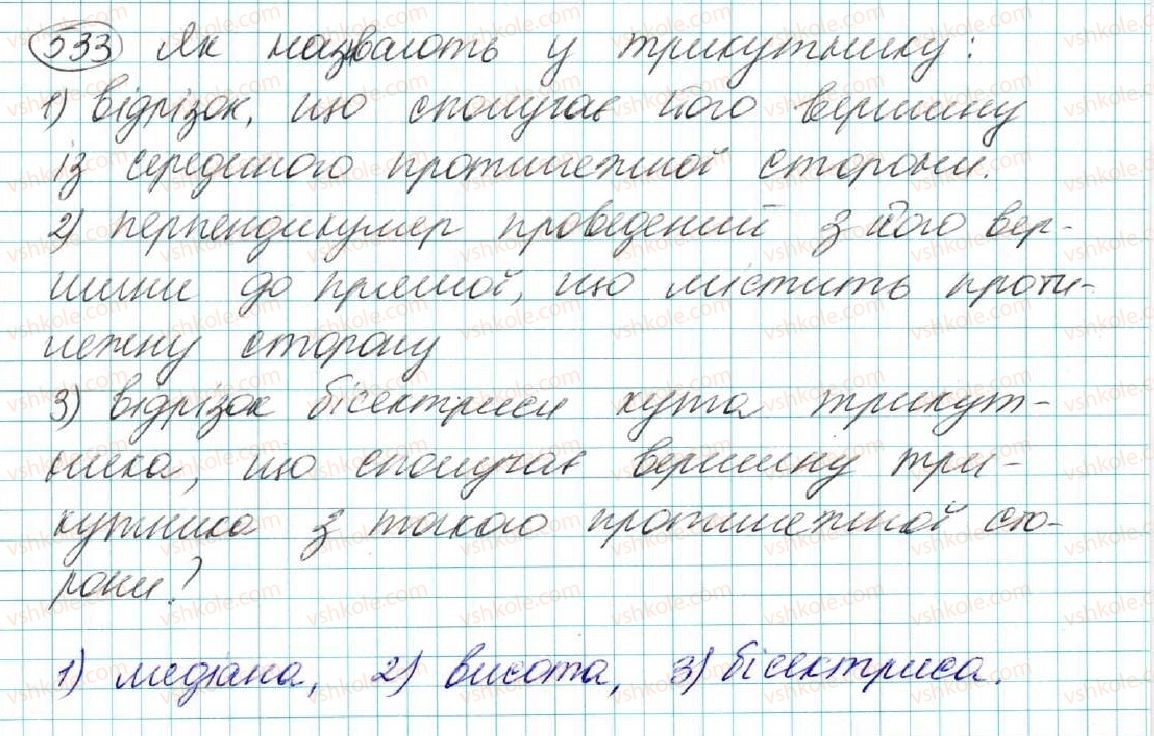 533 Як називають у трикутнику:
1) відрізок, що сполучає його вершину
із серединою протилежної сторони.
2) перпендикуляр проведений з його вер-
шини до прямої, що містить проти-
лежну сторону
3) відрізок бісектриси кута трикут-
ника, що сполучає вершину три-
кутника з точкою протилежної сто-
рони?
1) медіана, 2) висота, 3) бісектриса.